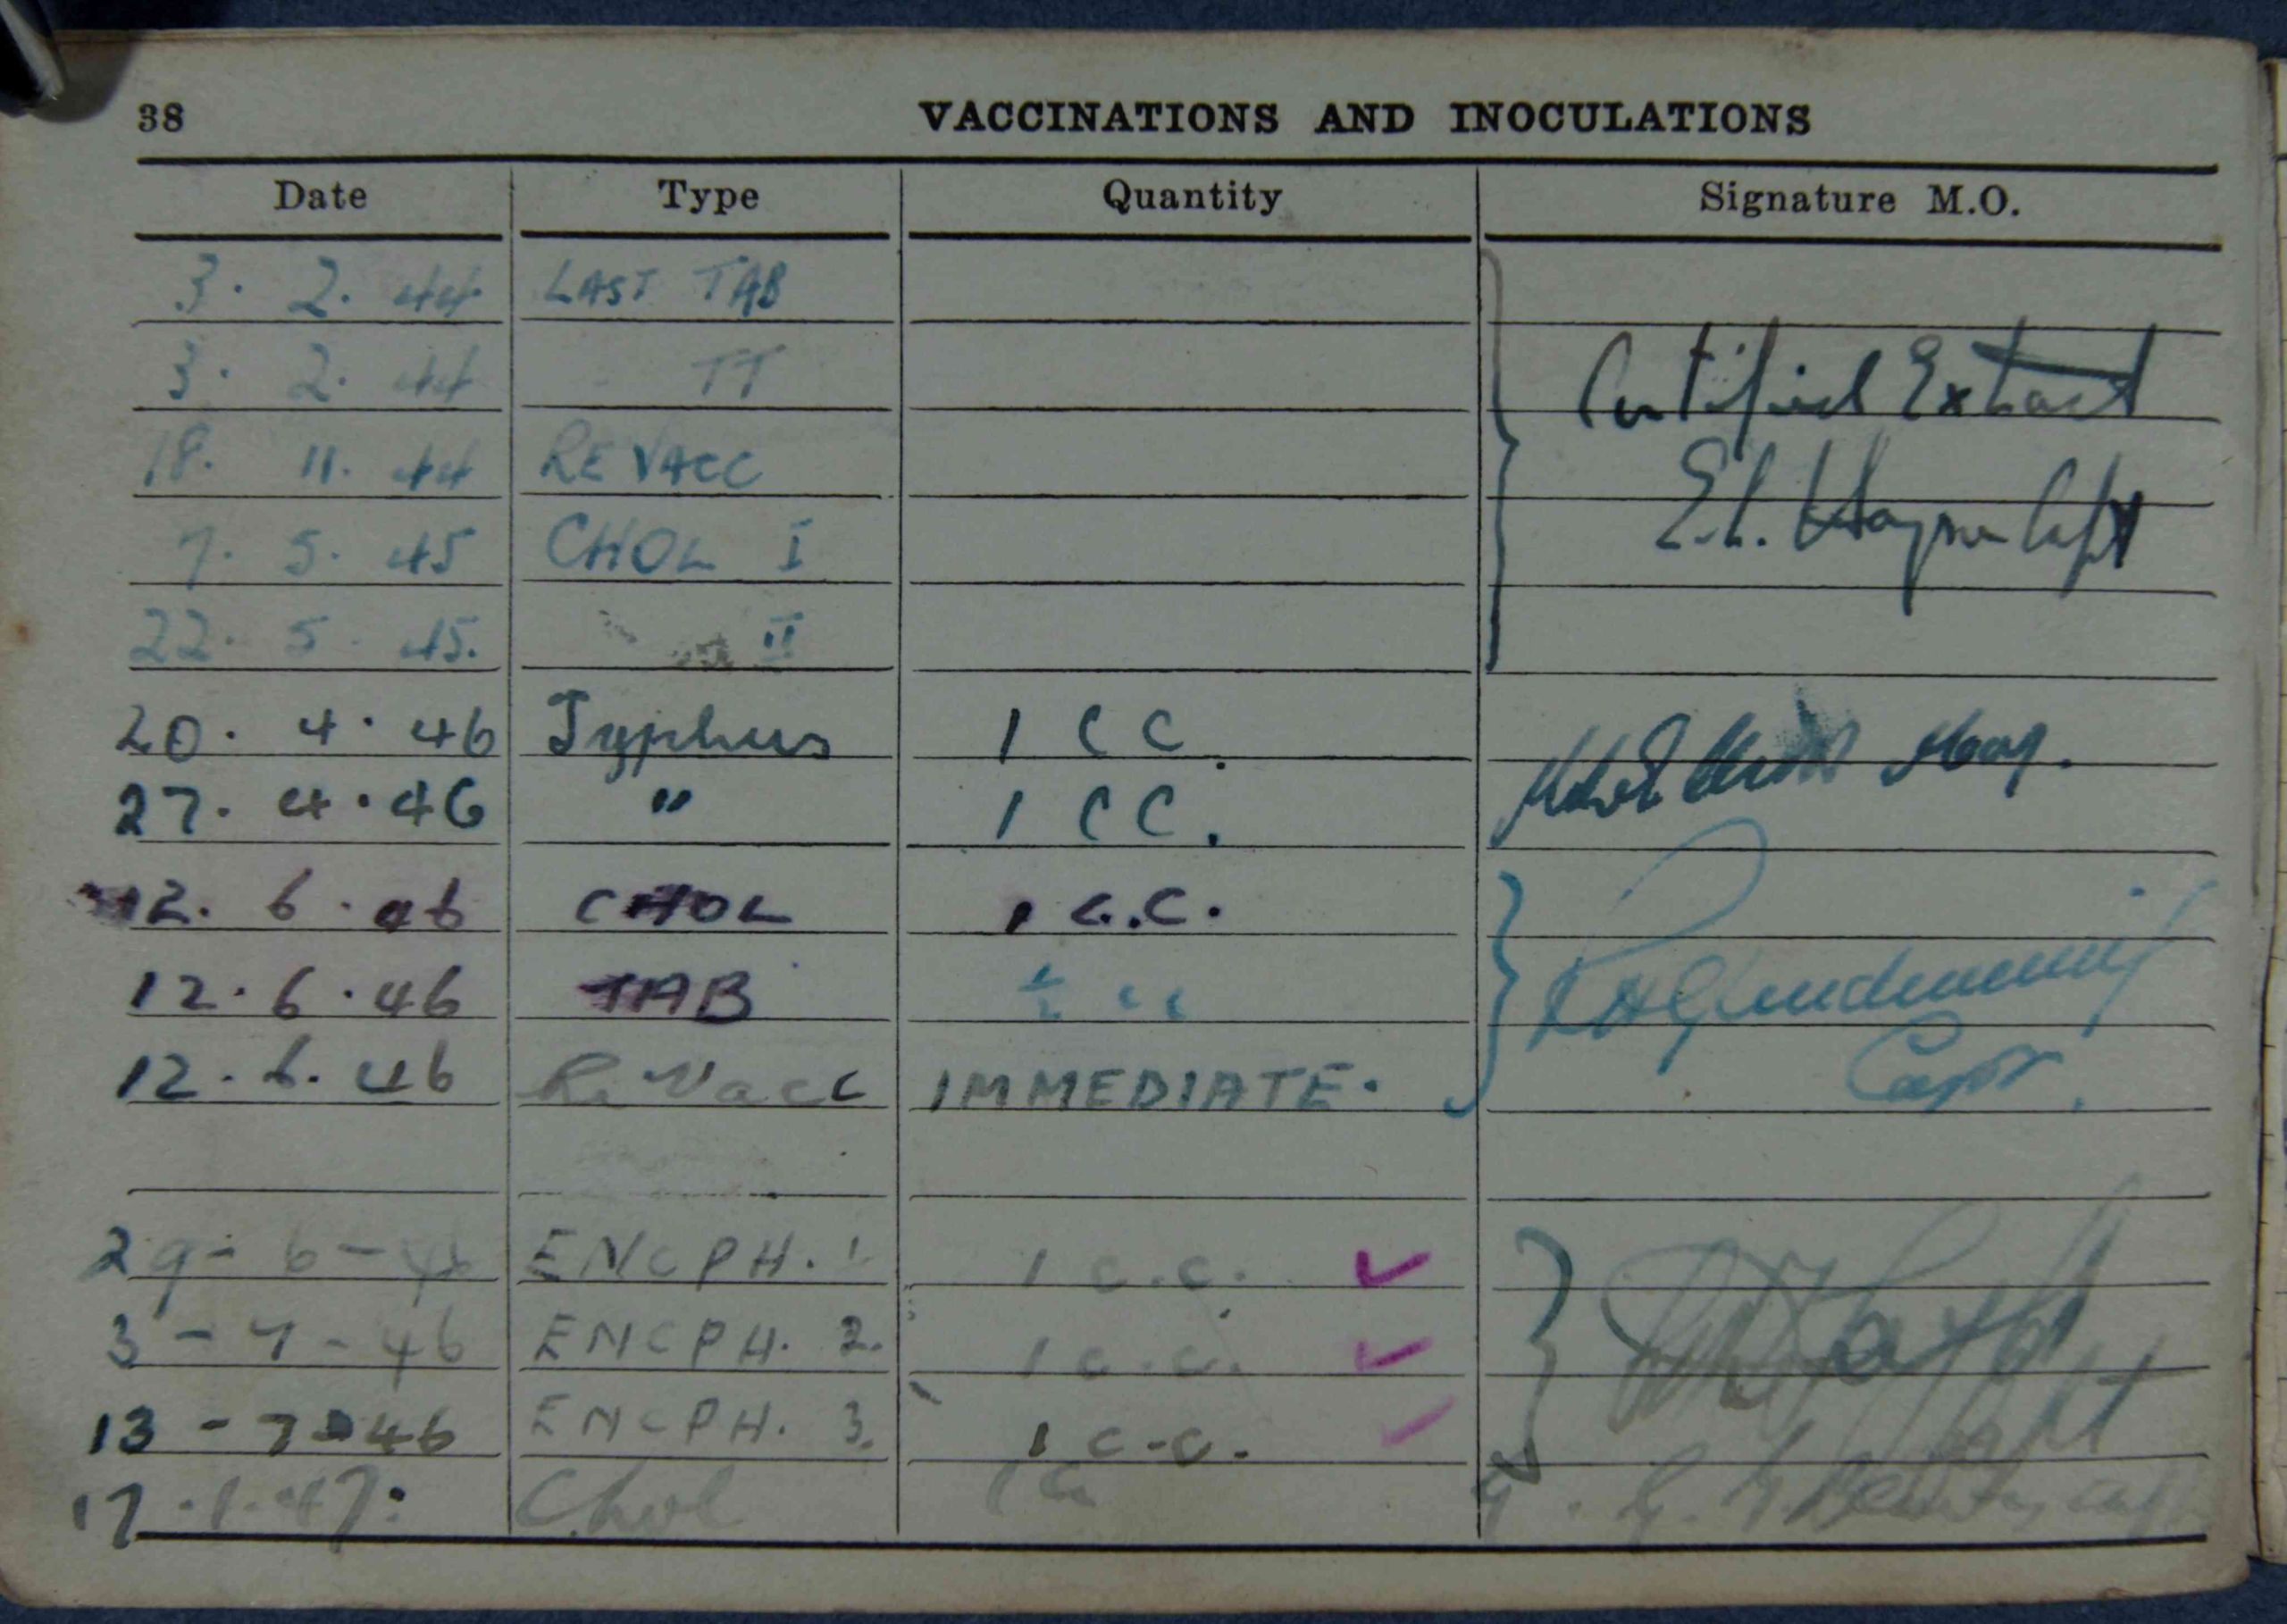 38 VACCINATIONS AND INOCULATIONS
Date Type Quantity Signature M.O.
3. 2. 44 LAST TAB
3. 2. 44 TT
Certified Extract
18. 11. 44 REVACC
7. 5. 45 CHOL I
Capt
22. 5. 45. II
20. 4. 46 Typhus 1 CC.
27. 4. 46 " 1 CC.
12. 6. 46 CHOL 1 C.C.
12. 6. 46 TAB ½ cc
12. 6. 46 Re Vacc IMMEDIATE.
Capt.
29 - 6 - 46 ENCPH. 1 1 c.c. ✓
3 - 7 - 46 ENCPH. 2. 1 c.c. ✓
13 - 7 - 46 ENCPH. 3. 1 c.c. ✓
Capt
17. 1. 47. Chol 1 cc